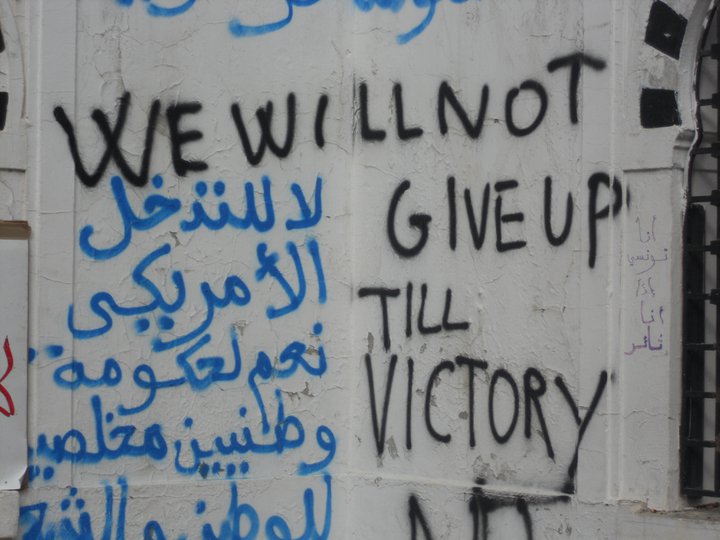 WE WILL NOT
GIVE UP
TILL
VICTORY
لا للتدخل
الأمريكي
نعم لحكومة..
وطنيين مخلصين
للوطن والشع
أنا
تونسي
إذا
أنا
ثائر